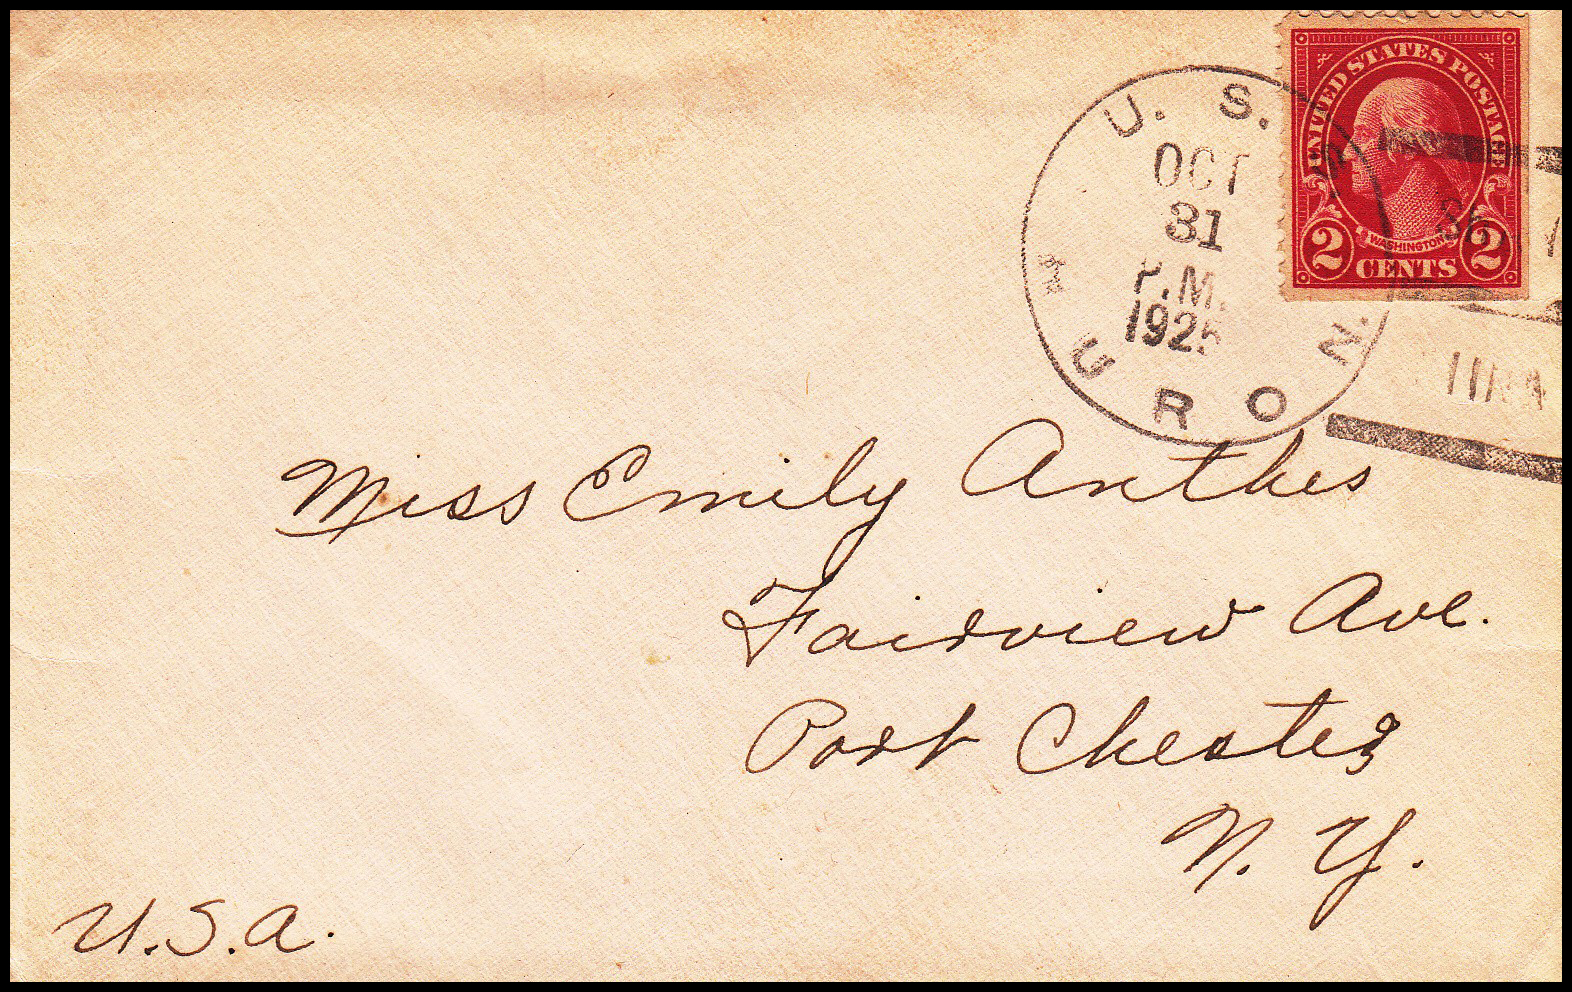 UNITED STATES POSTAGE
WASHINGTON
2 CENTS 2
U. S.
OCT
31
P.M.
1925
URON.
Miss Emily Anthes
Fairview Ave.
Port Chester
N. Y.
U.S.A.